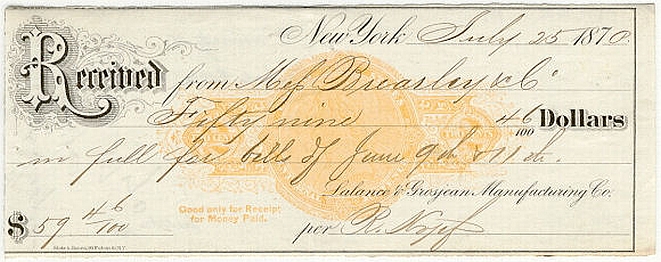 New York July 25 1870.
Received from Mess Brearley & Co
Fifty nine 46/100 Dollars
in full for bills of June 9th & 11th.
Lalance & Grosjean Manufacturing Co.
$ 59 46/100
Good only for Receipt
for Money Paid.
per R.